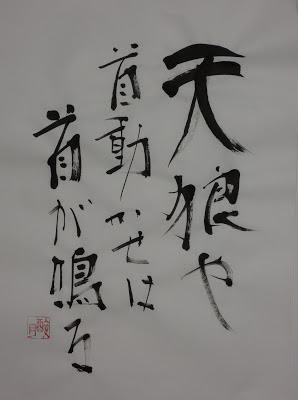 天狼や
首動かせは
首が鳴る